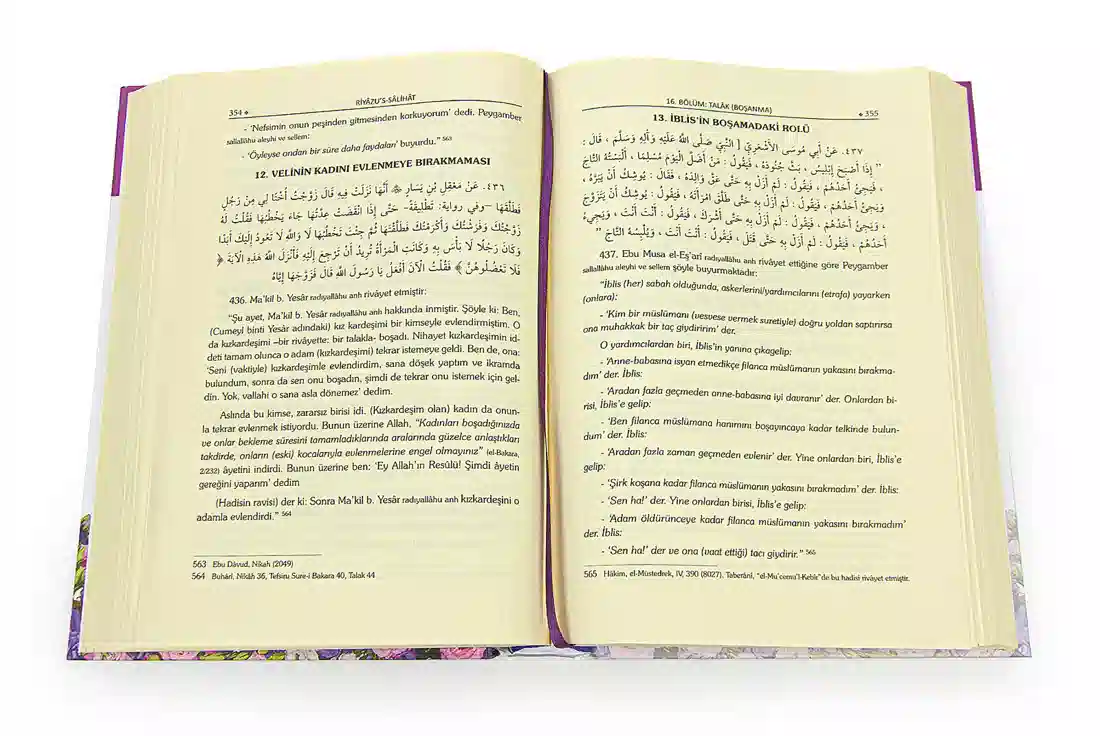 354 ⬥ RİYÂZU'S-SÂLİHÂT
- 'Nefsimin onun peşinden gitmesinden korkuyorum' dedi. Peygamber
sallallâhu aleyhi ve sellem:
- 'Öyleyse ondan bir süre daha faydalan' buyurdu." 563
12. VELİNİN KADINI EVLENMEYE BIRAKMAMASI
٤٣٦. عَنْ مَعْقِلِ بْنِ يَسَارٍ ﷺ أَنَّهَا نَزَلَتْ فِيهِ قَالَ زَوَّجْتُ أُخْتًا لِي مِنْ رَجُلٍ
فَطَلَّقَهَا –وفي رواية: تَطْلِيقَةً- حَتَّى إِذَا انْقَضَتْ عِدَّتُهَا جَاءَ يَخْطُبُهَا فَقُلْتُ لَهُ
زَوَّجْتُكَ وَفَرَشْتُكَ وَأَكْرَمْتُكَ فَطَلَّقْتَهَا ثُمَّ جِئْتَ تَخْطُبُهَا لَا وَاللَّهِ لَا تَعُودُ إِلَيْكَ أَبَدًا
وَكَانَ رَجُلًا لَا بَأْسَ بِهِ وَكَانَتِ الْمَرْأَةُ تُرِيدُ أَنْ تَرْجِعَ إِلَيْهِ فَأَنْزَلَ اللَّهُ هَذِهِ الْآيَةَ ﴿
فَلَا تَعْضُلُوهُنَّ ﴾ فَقُلْتُ الْآنَ أَفْعَلُ يَا رَسُولَ اللَّهِ قَالَ فَزَوَّجَهَا إِيَّاهُ
436. Ma'kil b. Yesâr radıyallâhu anh rivâyet etmiştir:
"Şu ayet, Ma'kil b. Yesâr radıyallâhu anh hakkında inmiştir. Şöyle ki: Ben,
(Cumeyl binti Yesâr adındaki) kız kardeşimi bir kimseyle evlendirmiştim. O
da kızkardeşimi –bir rivâyette: bir talakla- boşadı. Nihayet kızkardeşimin id-
deti tamam olunca o adam (kızkardeşimi) tekrar istemeye geldi. Ben de, ona:
'Seni (vaktiyle) kızkardeşimle evlendirdim, sana döşek yaptım ve ikramda
bulundum, sonra da sen onu boşadın, şimdi de tekrar onu istemek için gel-
din. Yok, vallahi o sana asla dönemez' dedim.
Aslında bu kimse, zararsız birisi idi. (Kızkardeşim olan) kadın da onun-
la tekrar evlenmek istiyordu. Bunun üzerine Allah, "Kadınları boşadığınızda
ve onlar bekleme süresini tamamladıklarında aralarında güzelce anlaştıkları
takdirde, onların (eski) kocalarıyla evlenmelerine engel olmayınız" (el-Bakara,
2/232) âyetini indirdi. Bunun üzerine ben: 'Ey Allah'ın Resûlü! Şimdi âyetin
gereğini yaparım' dedim
(Hadisin ravisi) der ki: Sonra Ma'kil b. Yesâr radıyallâhu anh kızkardeşini o
adamla evlendirdi." 564
563 Ebu Dâvud, Nikah (2049)
564 Buhârî, Nikâh 36, Tefsiru Sure-i Bakara 40, Talak 44
16. BÖLÜM: TALÂK (BOŞANMA) ⬥ 355
13. İBLİS'İN BOŞAMADAKİ ROLÜ
٤٣٧. عَنْ أَبِي مُوسَى الْأَشْعَرِيِّ [ النَّبِيِّ صَلَّى اللَّهُ عَلَيْهِ وَآلِهِ وَسَلَّمَ ، قَالَ :
" إِذَا أَصْبَحَ إِبْلِيسُ ، بَثَّ جُنُودَهُ ، فَيَقُولُ : مَنْ أَضَلَّ الْيَوْمَ مُسْلِمًا ، أَلْبَسْتُهُ التَّاجَ
، فَيَجِيءُ أَحَدُهُمْ ، فَيَقُولُ : لَمْ أَزَلْ بِهِ حَتَّى عَقَّ وَالِدَهُ ، فَقَالَ : يُوشِكُ أَنْ يَبَرَّهُ ،
وَيَجِيءُ أَحَدُهُمْ ، فَيَقُولُ : لَمْ أَزَلْ بِهِ حَتَّى طَلَّقَ امْرَأَتَهُ ، فَيَقُولُ : يُوشِكُ أَنْ يَتَزَوَّجَ
، وَيَجِيءُ أَحَدُهُمْ ، فَيَقُولُ : لَمْ أَزَلْ بِهِ حَتَّى أَشْرَكَ ، فَيَقُولُ : أَنْتَ أَنْتَ ، وَيَجِيءُ
أَحَدُهُمْ ، فَيَقُولُ : لَمْ أَزَلْ بِهِ حَتَّى قَتَلَ ، فَيَقُولُ : أَنْتَ أَنْتَ ، وَيُلْبِسُهُ التَّاجَ "
437. Ebu Musa el-Eş'arî radıyallâhu anh rivâyet ettiğine göre Peygamber
sallallâhu aleyhi ve sellem şöyle buyurmaktadır:
"İblis (her) sabah olduğunda, askerlerini/yardımcılarını (etrafa) yayarken
(onlara):
- 'Kim bir müslümanı (vesvese vermek suretiyle) doğru yoldan saptırırsa
ona muhakkak bir taç giydiririm' der.
O yardımcılardan biri, İblis'in yanına çıkagelip:
- 'Anne-babasına isyan etmedikçe filanca müslümanın yakasını bırakma-
dım' der. İblis:
- 'Aradan fazla geçmeden anne-babasına iyi davranır' der. Onlardan bi-
risi, İblis'e gelip:
- 'Ben filanca müslümana hanımını boşayıncaya kadar telkinde bulun-
dum' der. İblis:
- 'Aradan fazla zaman geçmeden evlenir' der. Yine onlardan biri, İblis'e
gelip:
- 'Şirk koşana kadar filanca müslümanın yakasını bırakmadım' der. İblis:
- 'Sen ha!' der. Yine onlardan birisi, İblis'e gelip:
- 'Adam öldürünceye kadar filanca müslümanın yakasını bırakmadım'
der. İblis:
- 'Sen ha!' der ve ona (vaat ettiği) tacı giydirir." 565
565 Hâkim, el-Müstedrek, IV, 390 (8027). Taberânî, "el-Mu'cemu'l-Kebîr"de bu hadisi rivâyet etmiştir.